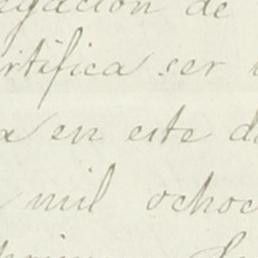 egación de
rtifica ser
a en este d
mil ochoc